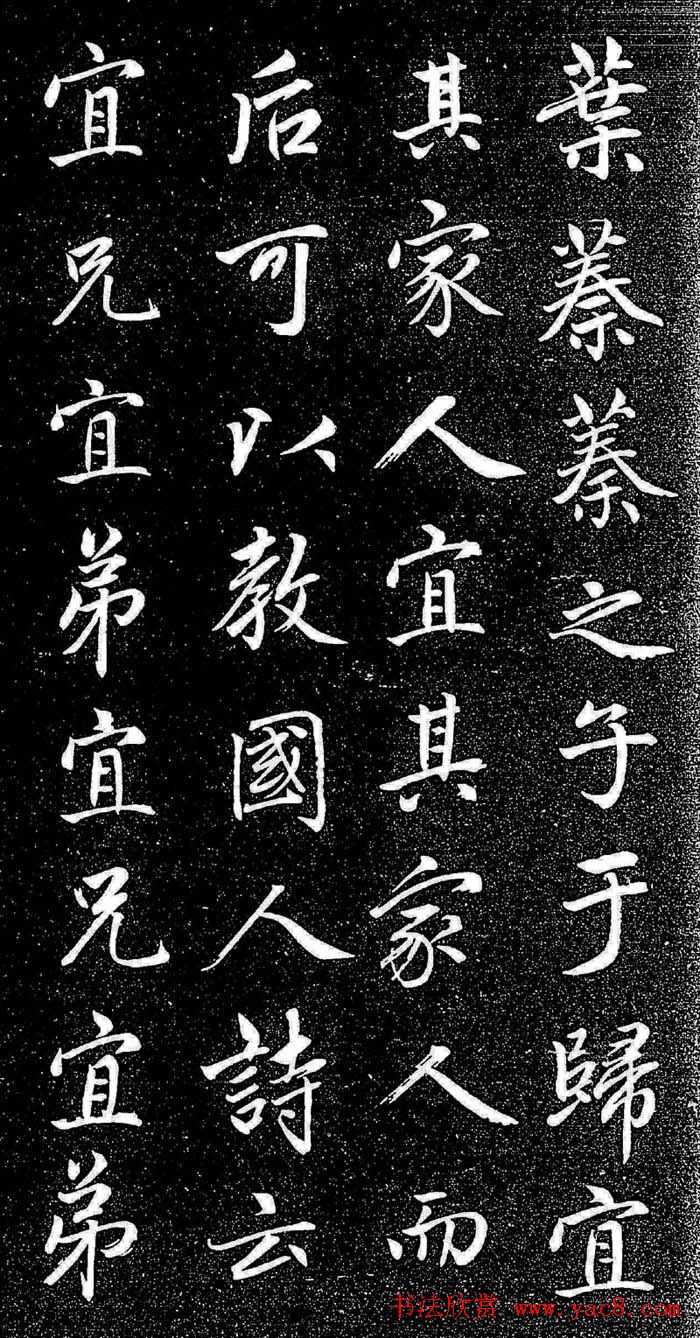 葉蓁蓁之子于歸宜
其家人宜其家人而
后可以教國人詩云
宜兄宜弟宜兄宜弟
书法欣赏 www.yac8.com